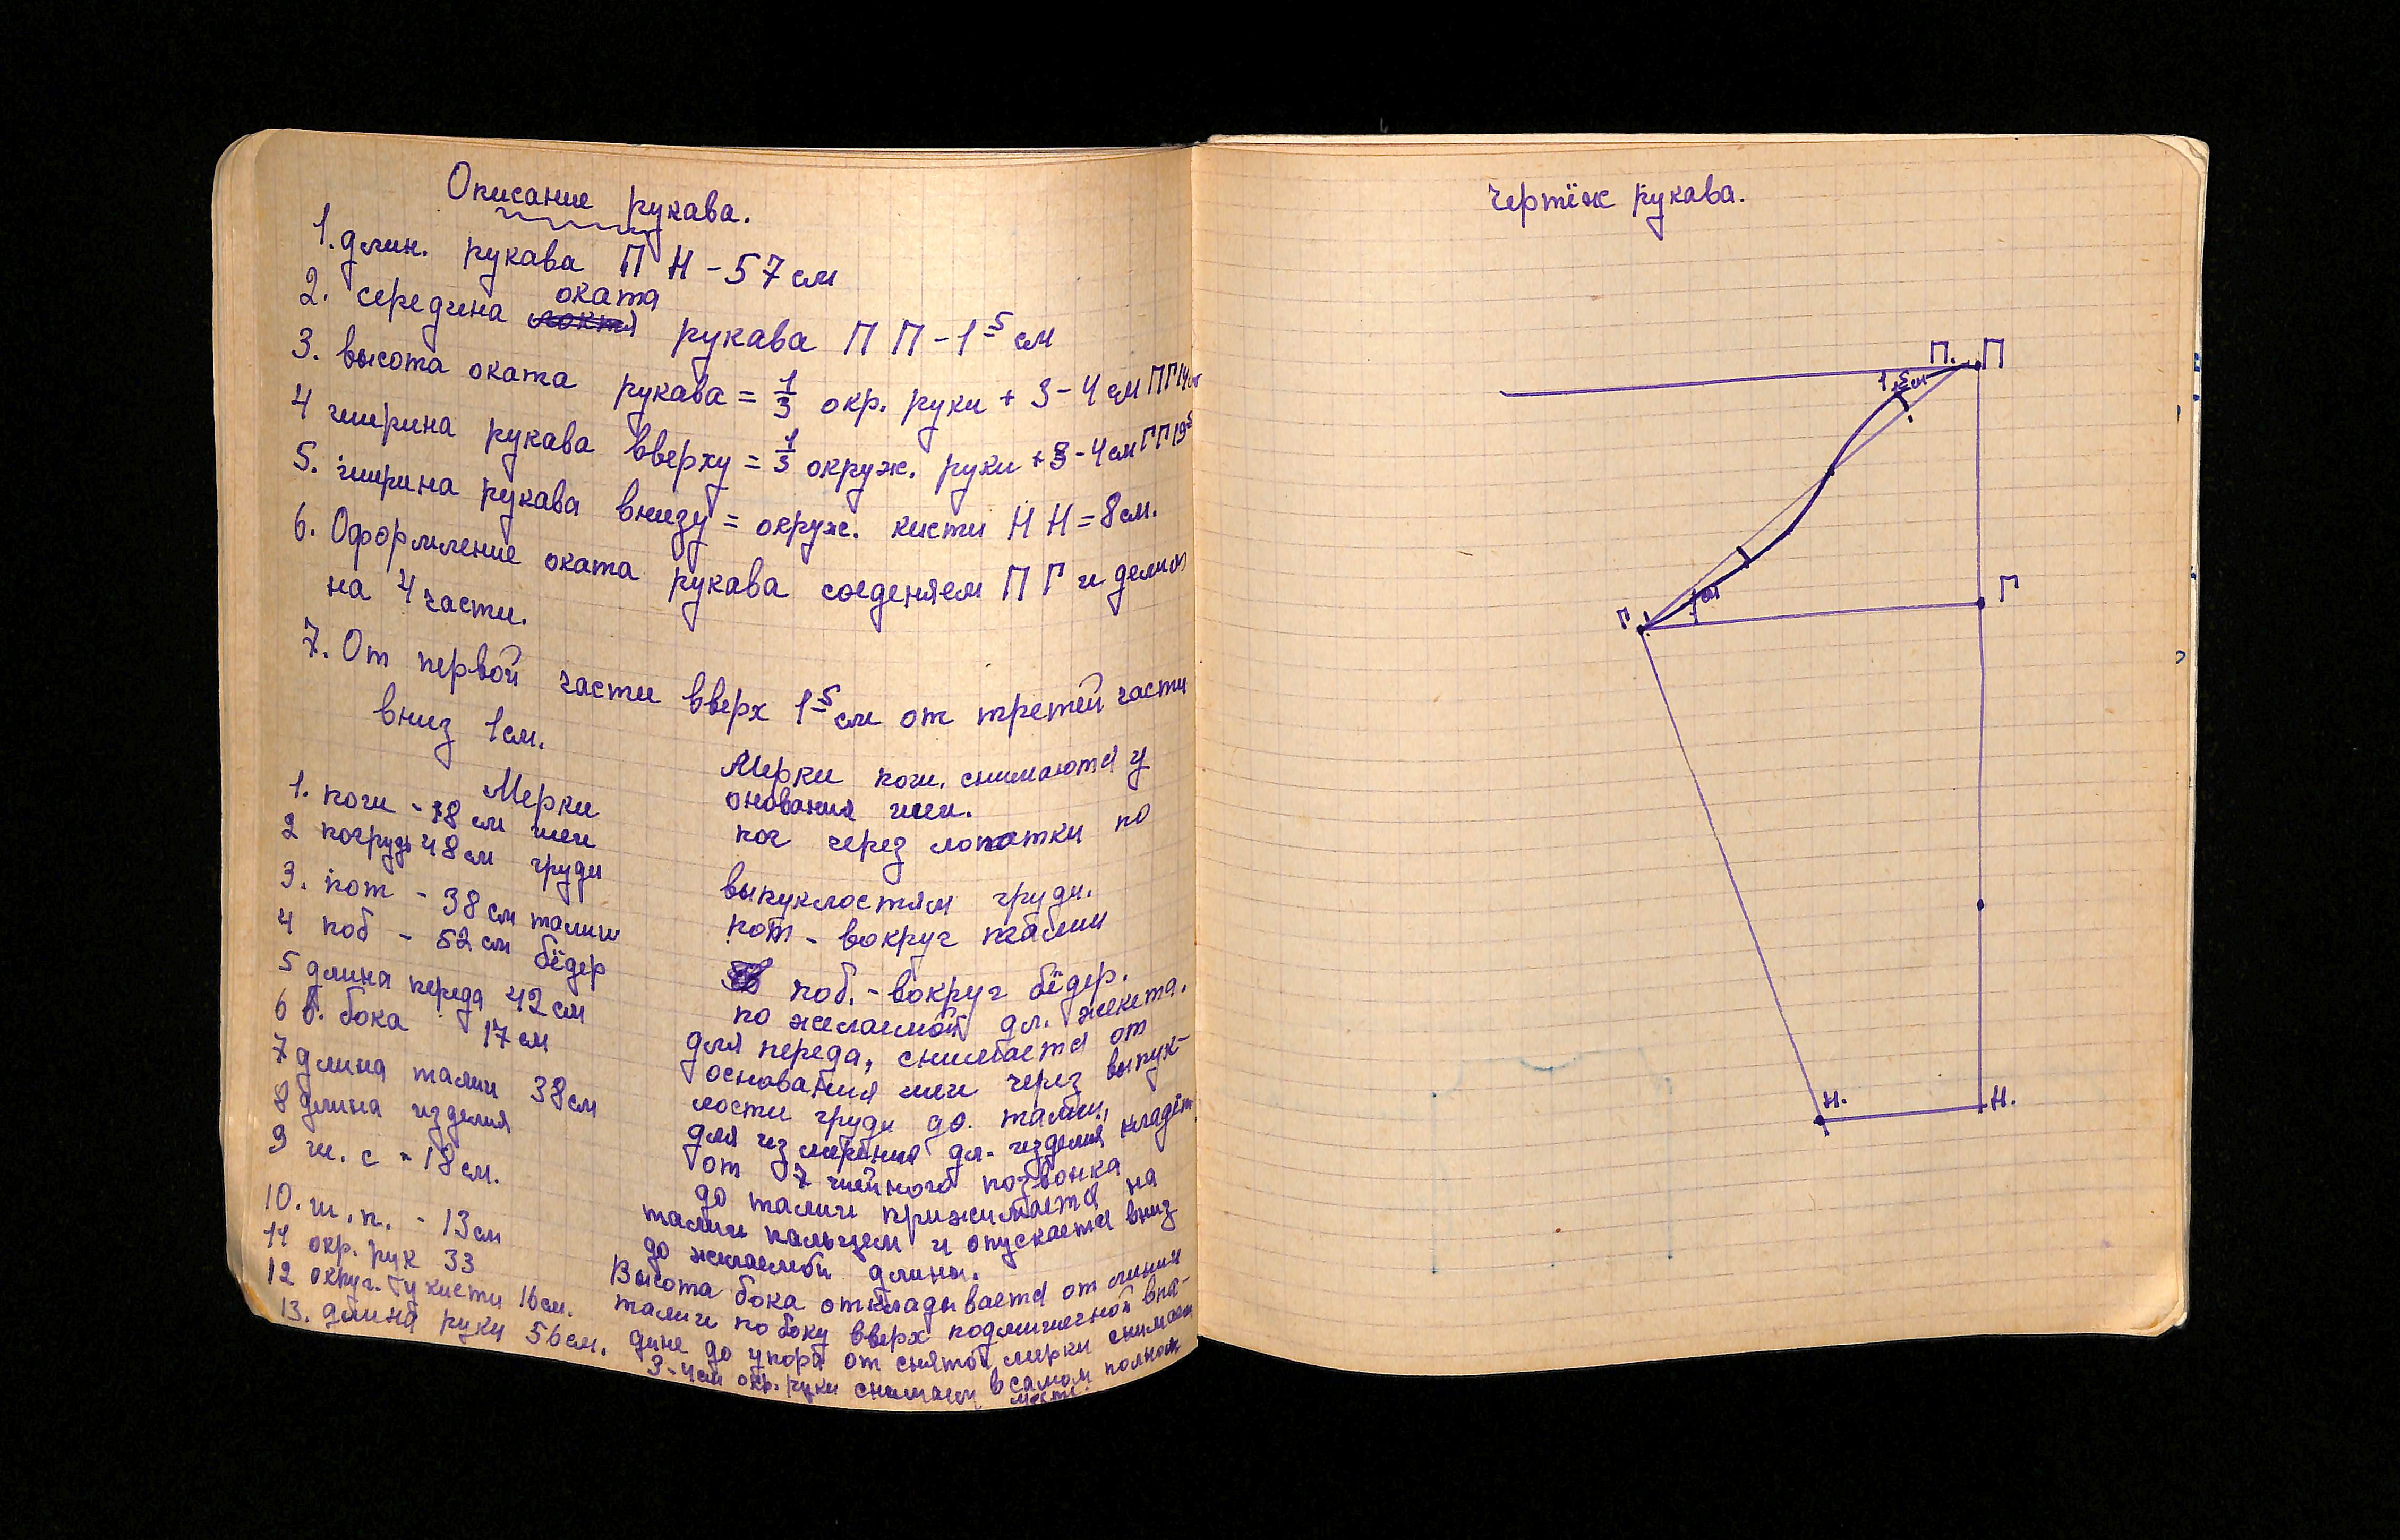 Описание рукава.
1. длин. рукава П Н - 57 см
оката
2. середина локтя рукава П П - 1 5 см
3. высота оката рукава = 1/3 окр. руки + 3-4 см ПГ 14 см
4 ширина рукава вверху = 1/3 окруж. руки + 3-4 см ГГ 19 5
5. ширина рукава внизу = окруж. кисти Н Н = 8 см.
6. Оформление оката рукава соеденяем П Г и делим
на 4 части.
7. От первой части вверх 1 5 см от третей части
вниз 1 см.
Мерки
1. поши - 18 см шеи
2 погрудь 48 см груди
3. пот - 38 см талии
4 поб - 52 см бёдер
5 длина переда 42 см
6 в. бока 17 см
7 длина талии 38 см
8 длина изделия
9 ш. с - 18 см.
10. ш. п. - 13 см
11 окр. рук 33
12 округ. кисти 16 см.
13. длина руку 56 см.
Мерки поши. снимаются у
онования шеи.
пог через лопатки по
выпуклостям груди.
пот - вокруг талии
поб. - вокруг бёдер.
по желаемой дл. жекета.
для переда, снимается от
основания шеи через выпук-
лости груди до талии,
для измерения дл. изделия кладём
от 7 шейного позвонка
до талии прижимается на
талии пальцем и опускается вниз
до желаемой длины.
Высота бока откладывается от линии
талии по боку вверх подмышечной впа-
дине до упора от снятой мерки снимаем
3-4 см окр. руки снимаем в самом полном
месте.
чертёж рукава.
П. П
1 5 см
Г
Г
1 см
Н. Н.